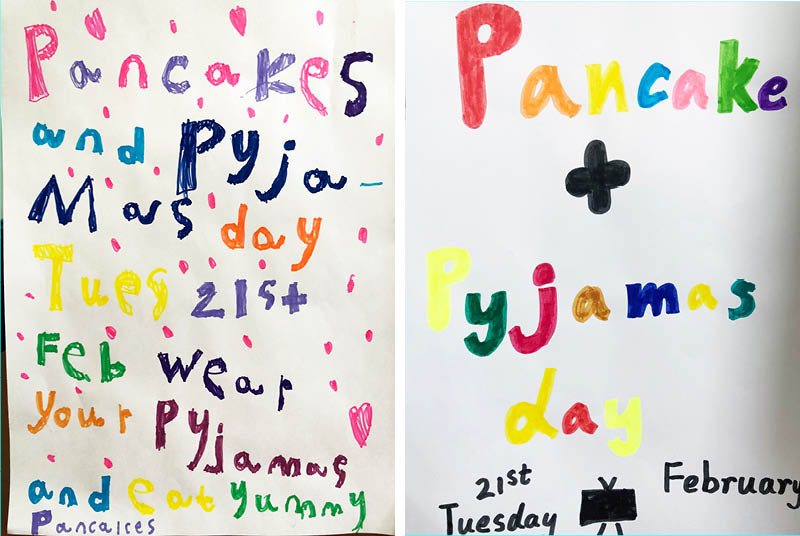 Pancakes
and Pyja-
mas day
Tues 21st
Feb wear
your Pyjamas
and eat yummy
Pancakes
Pancake
+
Pyjamas
day
21st February
Tuesday